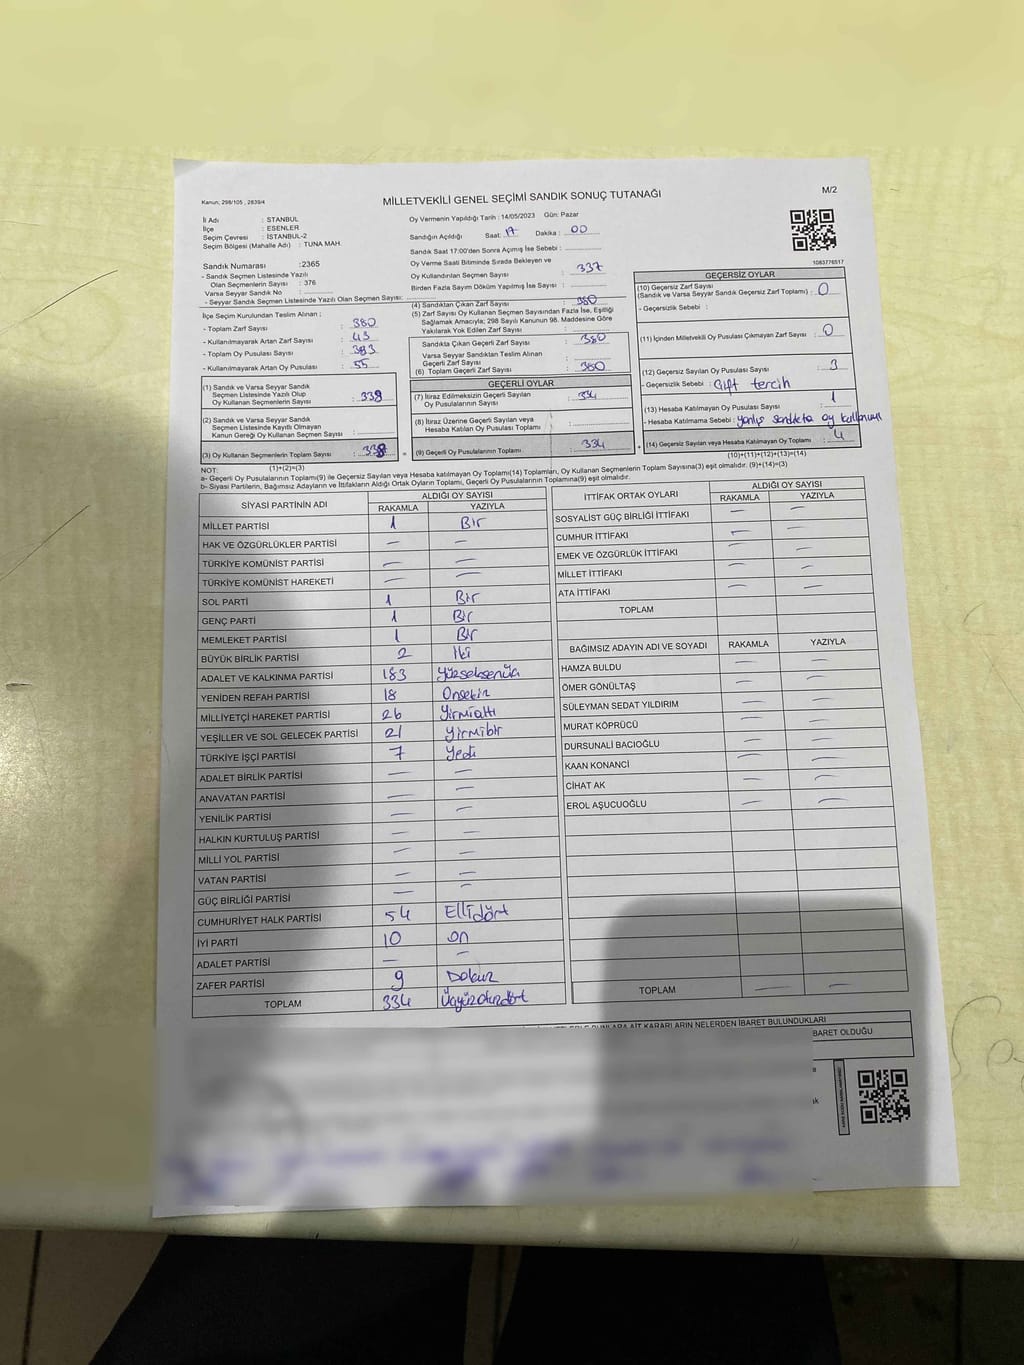 Kanun; 298/105 , 2839/4
MİLLETVEKİLİ GENEL SEÇİMİ SANDIK SONUÇ TUTANAĞI
M/2
İl Adı : STANBUL
İlçe : ESENLER
Seçim Çevresi : İSTANBUL-2
Seçim Bölgesi (Mahalle Adı) : TUNA MAH.
Sandık Numarası :2365
- Sandık Seçmen Listesinde Yazılı
Olan Seçmenlerin Sayısı : 376
Varsa Seyyar Sandık No :
- Seyyar Sandık Seçmen Listesinde Yazılı Olan Seçmen Sayısı:
Oy Vermenin Yapıldığı Tarih : 14/05/2023 Gün: Pazar
Sandığın Açıldığı Saat: 17 Dakika : 00
Sandık Saat 17:00'den Sonra Açımış İse Sebebi :
Oy Verme Saati Bitiminde Sırada Bekleyen ve
Oy Kullandırılan Seçmen Sayısı : 337
Birden Fazla Sayım Döküm Yapılmış İse Sayısı :
1083776517
İlçe Seçim Kurulundan Teslim Alınan ;
- Toplam Zarf Sayısı : 380
- Kullanılmayarak Artan Zarf Sayısı : 43
- Toplam Oy Pusulası Sayısı : 393
- Kullanılmayarak Artan Oy Pusulası : 55
(1) Sandık ve Varsa Seyyar Sandık
Seçmen Listesinde Yazılı Olup
Oy Kullanan Seçmenlerin Sayısı : 338
(2) Sandık ve Varsa Seyyar Sandık
Seçmen Listesinde Kayıtlı Olmayan
Kanun Gereği Oy Kullanan Seçmen Sayısı :
(3) Oy Kullanan Seçmenlerin Toplam Sayısı : 338
(1)+(2)=(3)
(4) Sandıktan Çıkan Zarf Sayısı : 380
(5) Zarf Sayısı Oy Kullanan Seçmen Sayısından Fazla İse, Eşitliği
Sağlamak Amacıyla; 298 Sayılı Kanunun 98. Maddesine Göre
Yakılarak Yok Edilen Zarf Sayısı :
Sandıkta Çıkan Geçerli Zarf Sayısı : 380
Varsa Seyyar Sandıktan Teslim Alınan
Geçerli Zarf Sayısı :
(6) Toplam Geçerli Zarf Sayısı : 380
GEÇERLİ OYLAR
(7) İtiraz Edilmeksizin Geçerli Sayılan
Oy Pusulalarının Sayısı : 334
(8) İtiraz Üzerine Geçerli Sayılan veya
Hesaba Katılan Oy Pusulası Toplamı :
(9) Geçerli Oy Pusulalarının Toplamı : 334
GEÇERSİZ OYLAR
(10) Geçersiz Zarf Sayısı
(Sandık ve Varsa Seyyar Sandık Geçersiz Zarf Toplamı) : 0
- Geçersizlik Sebebi :
(11) İçinden Milletvekili Oy Pusulası Çıkmayan Zarf Sayısı : 0
(12) Geçersiz Sayılan Oy Pusulası Sayısı : 3
- Geçersizlik Sebebi : Çift tercih
(13) Hesaba Katılmayan Oy Pusulası Sayısı : 1
- Hesaba Katılmama Sebebi : yanlış sandıkta oy kullanımı
(14) Geçersiz Sayılan veya Hesaba Katılmayan Oy Toplamı : 4
(10)+(11)+(12)+(13)=(14)
NOT:
a- Geçerli Oy Pusulalarının Toplamı(9) ile Geçersiz Sayılan veya Hesaba katılmayan Oy Toplamı(14) Toplamları, Oy Kullanan Seçmenlerin Toplam Sayısına(3) eşit olmalıdır. (9)+(14)=(3)
b- Siyasi Partilerin, Bağımsız Adayların ve İttifakların Aldığı Ortak Oyların Toplamı, Geçerli Oy Pusulalarının Toplamına(9) eşit olmalıdır.
SİYASİ PARTİNİN ADI ALDIĞI OY SAYISI
RAKAMLA YAZIYLA
MİLLET PARTİSİ 1 Bir
HAK VE ÖZGÜRLÜKLER PARTİSİ — —
TÜRKİYE KOMÜNİST PARTİSİ — —
TÜRKİYE KOMÜNİST HAREKETİ — —
SOL PARTİ 1 Bir
GENÇ PARTİ 1 Bir
MEMLEKET PARTİSİ 1 Bir
BÜYÜK BİRLİK PARTİSİ 2 İki
ADALET VE KALKINMA PARTİSİ 183 Yüzseksenüç
YENİDEN REFAH PARTİSİ 18 Onsekiz
MİLLİYETÇİ HAREKET PARTİSİ 26 Yirmialtı
YEŞİLLER VE SOL GELECEK PARTİSİ 21 Yirmibir
TÜRKİYE İŞÇİ PARTİSİ 7 Yedi
ADALET BİRLİK PARTİSİ — —
ANAVATAN PARTİSİ — —
YENİLİK PARTİSİ — —
HALKIN KURTULUŞ PARTİSİ — —
MİLLİ YOL PARTİSİ — —
VATAN PARTİSİ — —
GÜÇ BİRLİĞİ PARTİSİ — —
CUMHURİYET HALK PARTİSİ 54 Ellidört
İYİ PARTİ 10 on
ADALET PARTİSİ — —
ZAFER PARTİSİ 9 Dokuz
TOPLAM 334 Üçyüzotuzdört
İTTİFAK ORTAK OYLARI ALDIĞI OY SAYISI
RAKAMLA YAZIYLA
SOSYALİST GÜÇ BİRLİĞİ İTTİFAKI — —
CUMHUR İTTİFAKI — —
EMEK VE ÖZGÜRLÜK İTTİFAKI — —
MİLLET İTTİFAKI — —
ATA İTTİFAKI — —
TOPLAM
BAĞIMSIZ ADAYIN ADI VE SOYADI RAKAMLA YAZIYLA
HAMZA BULDU — —
ÖMER GÖNÜLTAŞ — —
SÜLEYMAN SEDAT YILDIRIM — —
MURAT KÖPRÜCÜ — —
DURSUNALİ BACIOĞLU — —
KAAN KONANCİ — —
CİHAT AK — —
EROL AŞUCUOĞLU — —
TOPLAM — —
AİT KARARLARIN NELERDEN İBARET BULUNDUKLARI
BARET OLDUĞU